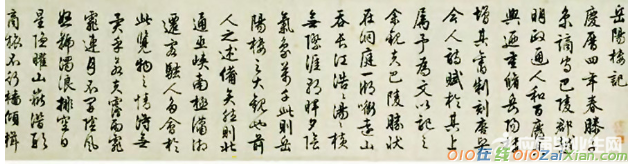 岳陽樓記
慶曆四年春滕子
京謫守巴陵郡越
明政通人和百廢
興迺重脩岳陽樓
增其舊制刻唐賢
今人詩賦於其上
属予為文以記之
余觀夫巴陵勝狀
在洞庭一湖銜遠山
吞長江浩浩湯湯橫
無際涯朝暉夕陰
氣象萬千此則岳
陽樓之大觀也前
人之述備矣然則北
通巫峽南極瀟湘
遷客騷人多會於
此覽物之情得無
異乎若夫霪雨霏
霏連月不開陰風
怒號濁浪排空日
星隱曜山岳潛形
商旅不行檣傾楫
010在线010zaiXian.com